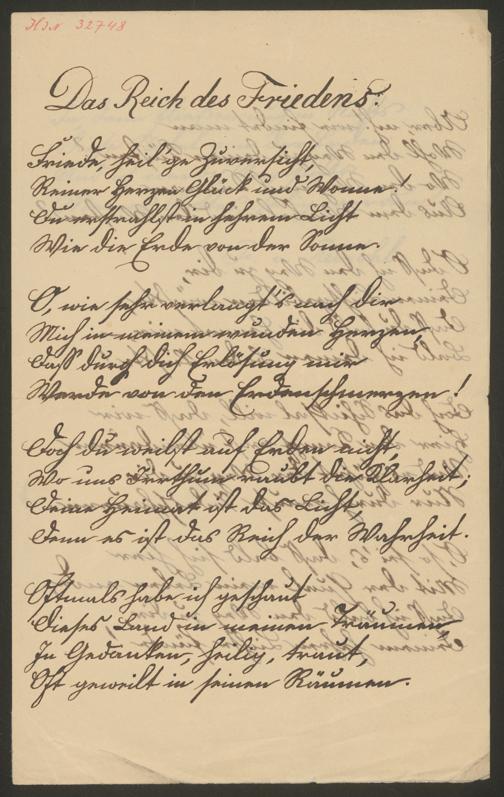 HIN 32748
Das Reich des Friedens.
Friede, heil'ge Zuversicht,
Reiner Herzen Glück und Wonne!
Du erstrahlst in hehrem Licht
Wie die Erde von der Sonne.
O, wie sehr verlangt's nach dir
Mich in meinem wunden Herzen,
Dass durch dich Erlösung mir
Werde von den Erdenschmerzen!
Doch du weilst auf Erden nicht,
Wo uns Irrthum raubt die Klarheit;
Deine Heimat ist das Licht,
Denn es ist das Reich der Wahrheit.
Oftmals habe ich geschaut
Dieses Land in meinen Träumen,
In Gedanken, heilig, traut,
Oft geweilt in seinen Räumen.